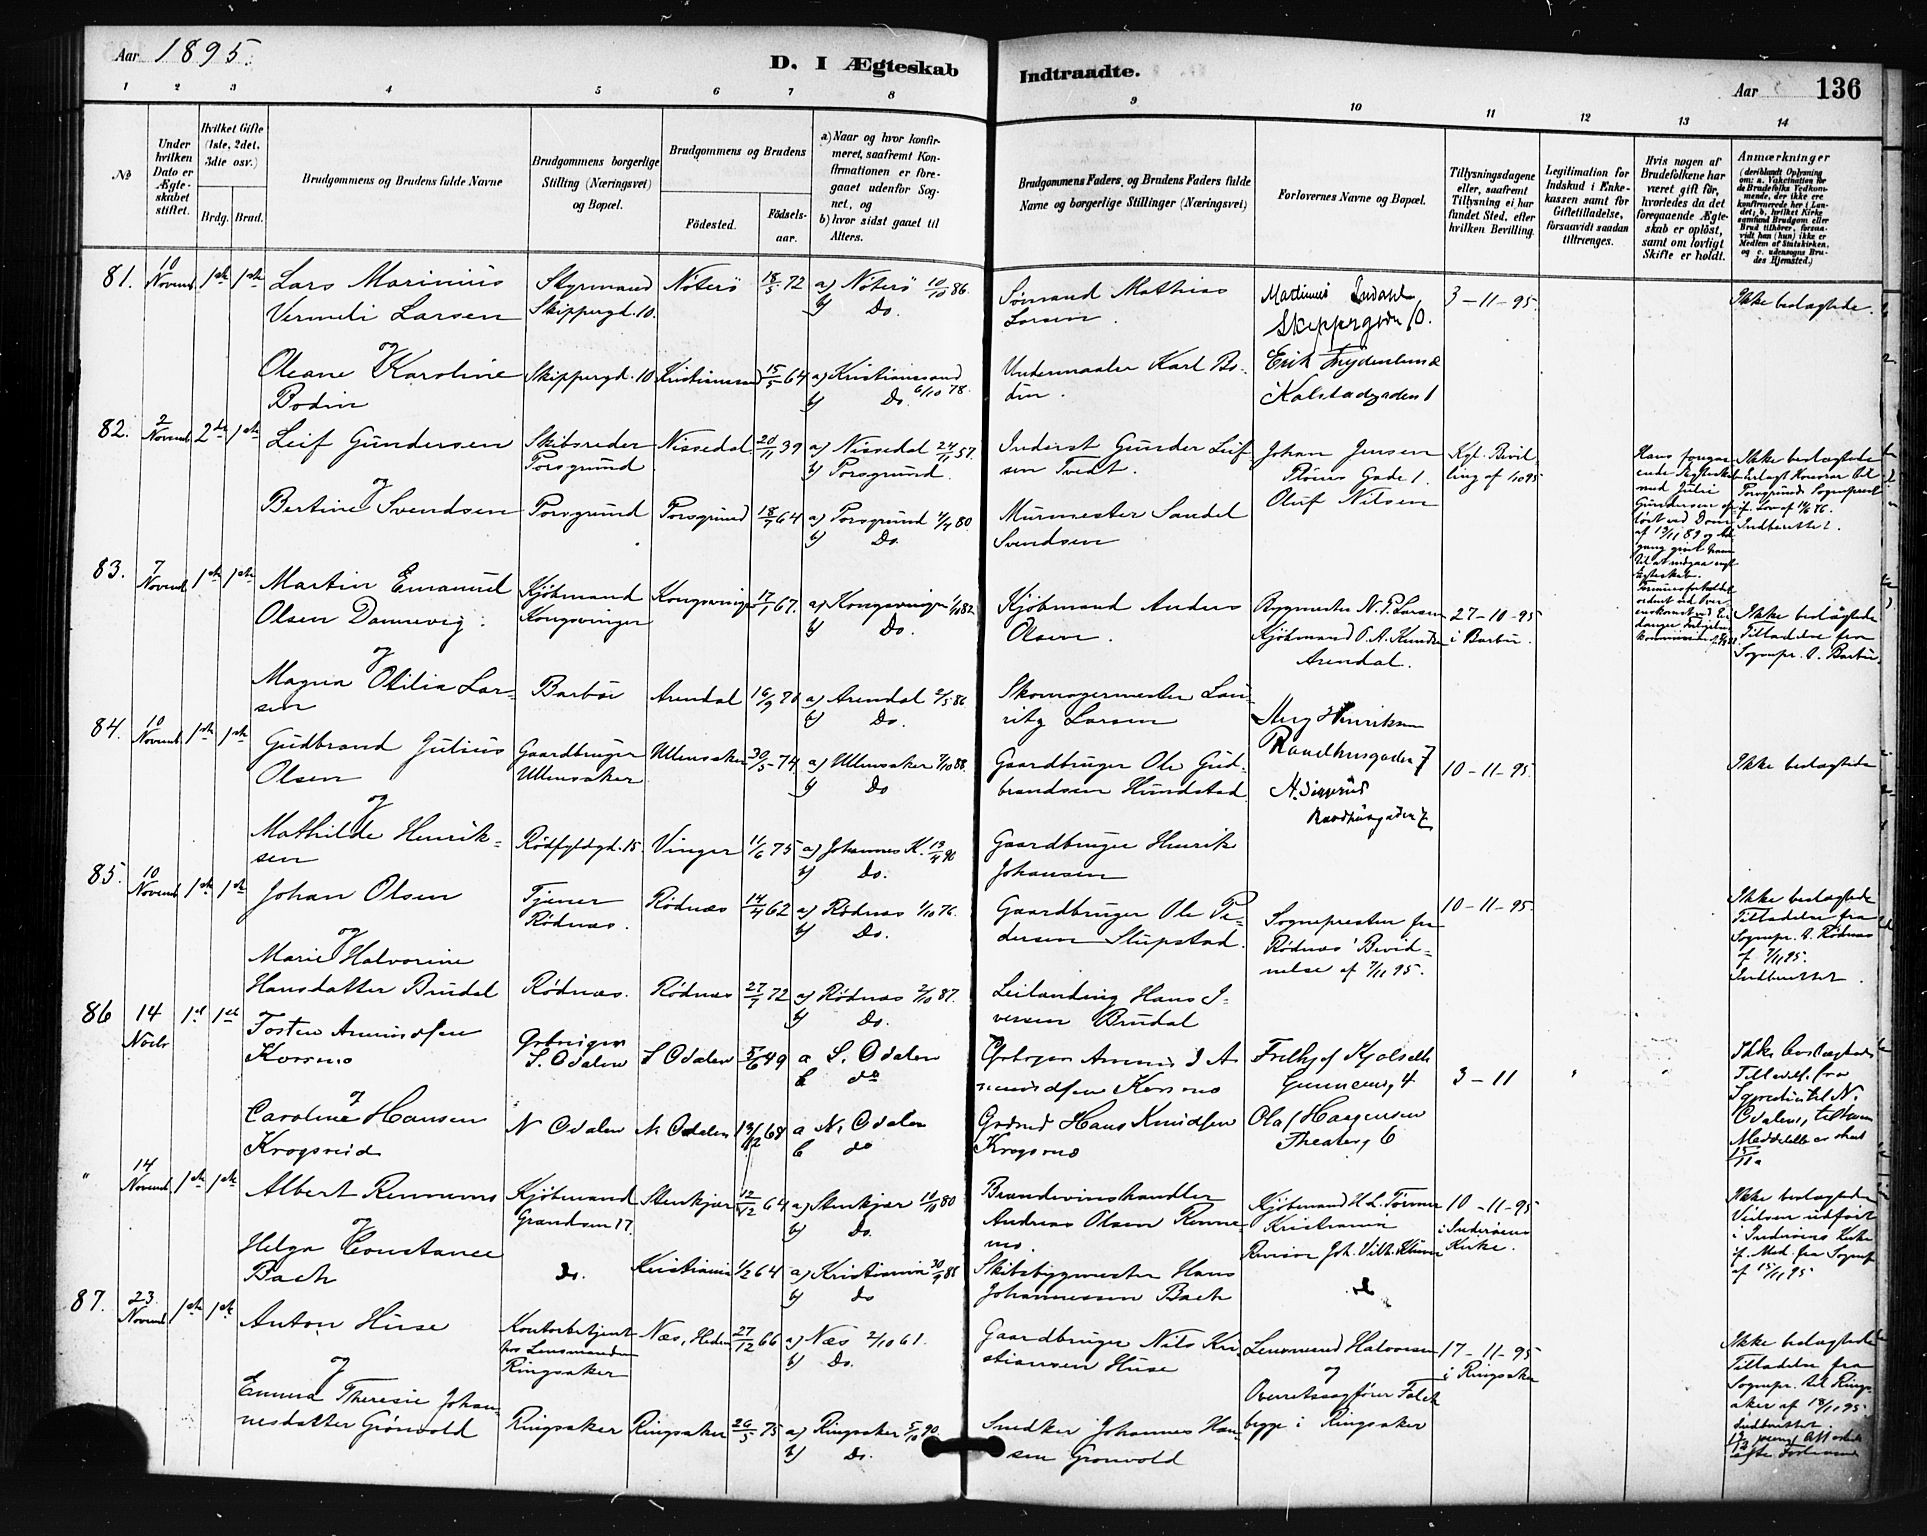 Aar 1895.
D. I Ægteskab Indtraadte.
Aar 136
1 2 3 4 5 6 7 8 9 10 11 12 13 14
No
Under hvilken Dato er Ægteskabet stiftet.
Hvilket Gifte (1ste, 2det, 3die osv.)
Brdg. Brud.
Brudgommens og Brudens fulde Navne
Brudgommens borgerlige Stilling (Næringsvei) og Bopæl.
Brudgommens og Brudens
Fødested. Fødselsaar.
a) Naar og hvor konfirmeret, saafremt Konfirmationen er foregaaet udenfor Sognet, og
b) hvor sidst gaaet til Alters.
Brudgommens Faders, og Brudens Faders fulde Navne og borgerlige Stillinger (Næringsvei)
Forlovernes Navne og Bopæl.
Tillysningsdagene eller, saafremt Tillysning ei har fundet Sted, efter hvilken Bevilling.
Legitimation for Indskud i Enkekassen samt for Giftetilladelse, forsaavidt saadan tiltrænges.
Hvis nogen af Brudefolkene har været gift før, hvorledes da det foregaaende Ægteskab er opløst, samt om lovligt Skifte er holdt.
Anmærkninger (deriblandt Oplysning om: a. Vakcination for de Brudefolks Vedkommende, der ikke ere konfirmerede her i Landet; b. hvilken Kirke samtlige Brudgom eller Brud tilhører, forsaavidt han (hun) ikke er Medlem af Statskirken, og c. udensogns Brudes Hjemsted.)
81. 10 Novemb 1ste 1ste
Lars Marinius
Vermeli Larsen
Styrmand
Skippergd. 10.
Nøterø 18/5 72
a) Nøterø 10/10 86.
b) Do.
Sømand Mathias
Larsen.
Martinius
Skippergaden 10.
3-11-95.
Ikke beslægtede.
og
Oleane Karoline
Bodin
Skippergd. 10 Kristianssand 15/5 64
a) Kristianssand
6/10 78.
b) Do.
Undermaaler Karl Bodin.
Erik Frydenlund
Kalstadgaden 1
82. 2 Novemb 2det 1ste
Leif Gundersen
Skibsreder
Porsgrund
Nissedal 20/11 39
a) Nissedal 24/11 57.
b) Porsgrund.
Inderst Gunder Leifsen Tvedt.
Johan Jensen
Pløens Gade 1.
Kgl. Bevilling af 1/10 95
Ikke beslægtede
og
Bertine Svendsen
Porsgrund Porsgrund 18/9 64
a) Porsgrund 4/4 80
b) Do.
Murmester Sandel
Svendsen
Oluf Nilsen
83. 7 Novemb 1ste 1ste
Martin Emanuel
Olsen Dannevig.
Kjøbmand
Kongsvinger
Kongsvinger 17/1 67.
a) Kongsvinger 1/10 82
b) Do.
Kjøbmand Anders
Olsen.
Bygmester N. P. Larsen
Kjøbmand O. A. Knudsen
Arendal.
27-10-95
i Barbu.
Ikke beslægtede
Tilladelse fra
Sognepr. i Barbu.
og
Magna Otilia Larsen
Barbu Arendal 16/9 70
a) Arendal 2/5 86
b) Do.
Skomagermester Lauritz Larsen
84. 10 Novemb 1ste 1ste
Gudbrand Julius
Olsen
Gaardbruger
Ullensaker
Ullensaker 30/5 74.
a) Ullensaker 7/10 88.
b) Do
Gaardbruger Ole Gudbrandsen Hundstad.
Henriksen
Raadhusgaden 7
10-11-95.
Ikke beslægtede
og
Mathilde Henriksen
Rødfyldgd. 15. Vinger 11/6 75
a) Johannes K. 13/4 90
b) Do.
Gaardbruger Henrik
Johansen
Raadhusgaden 7
85. 10 Novemb 1ste 1ste
Johan Olsen
Tjener
Rødnæs.
Rødnæs 14/4 62
a) Rødnæs 1/10 76.
b) Do.
Gaardbruger Ole Pedersen Slupstad.
Sognepresten for
Rødnæs' Bevidnelse af 7/11 95.
10-11-95.
Ikke beslægtede
Tilladelse fra
Sognepr. i Rødnæs
af 7/11 95.
Indberettet.
og
Marie Halvorine
Hansdatter Brudal
Rødnæs. Rødnæs 27/7 72
a) Rødnæs 2/10 87.
b) Do.
Leilænding Hans Iversen Brudal
86 14 Novbr 1ste 1ste
Tosten Amundsen
Korsmo
Grbruger
S. Odalen
S Odalen 5/6 49
a S. Odalen
b do
Grbruger Amund Amundsen Korsmo
Fridtjof Kjølseth
4
3-11
og
Caroline Hansen
Krogsrud
N Odalen N. Odalen 19/12 68
a N. Odalen
b do
Hans Knudsen
Olaf Haagensen
Theaterg 6
" 14 Novemb 1ste 1ste
Albert Rennemo
Kjøbmand
Grændsen 17.
Stenkjær 12/12 64
a) Stenkjær 10/10 80
b) Do.
Brændevinshandler
Andreas Olsen Rennemo.
Kjøbmand H. L. Tørmer
Kristiania
10-11-95
i Inderøens
Kirke.
Ikke beslægtede
Vielsen udført
i Inderøens Kirke
if. Med. fra Sognepr
af 15/11 95
og
Helga Constance
Bach
do. Kristiania 1/2 64
a) Kristiania 30/9 88
b) do
Skibsbygmester Hans
Johannessen Bach
Revisor Joh. Vilh.
87. 23 Novemb 1ste 1ste
Anton Huse
Kontorbetjent
hos Lensmanden
Ringsaker
Næs, Hedm 27/12 66
a) Næs 2/10 61.
b) Do.
Gaardbruger Nils Kristiansen Huse
Lensmand Halvorsen
og
Overretssagfører Falck
begge i Ringsaker
17-11-95
i Ringsaker
Ikke beslægtede
Tilladelse fra
Sognepr. til Ringsaker af 18/11 95
Indberettet
og
Emma Theresie Johannesdatter Grønvold
Ringsaker Ringsaker 26/5 75
a) Ringsaker 5/10 90.
b) Do.
Snedker Johannes Hansen Grønvold